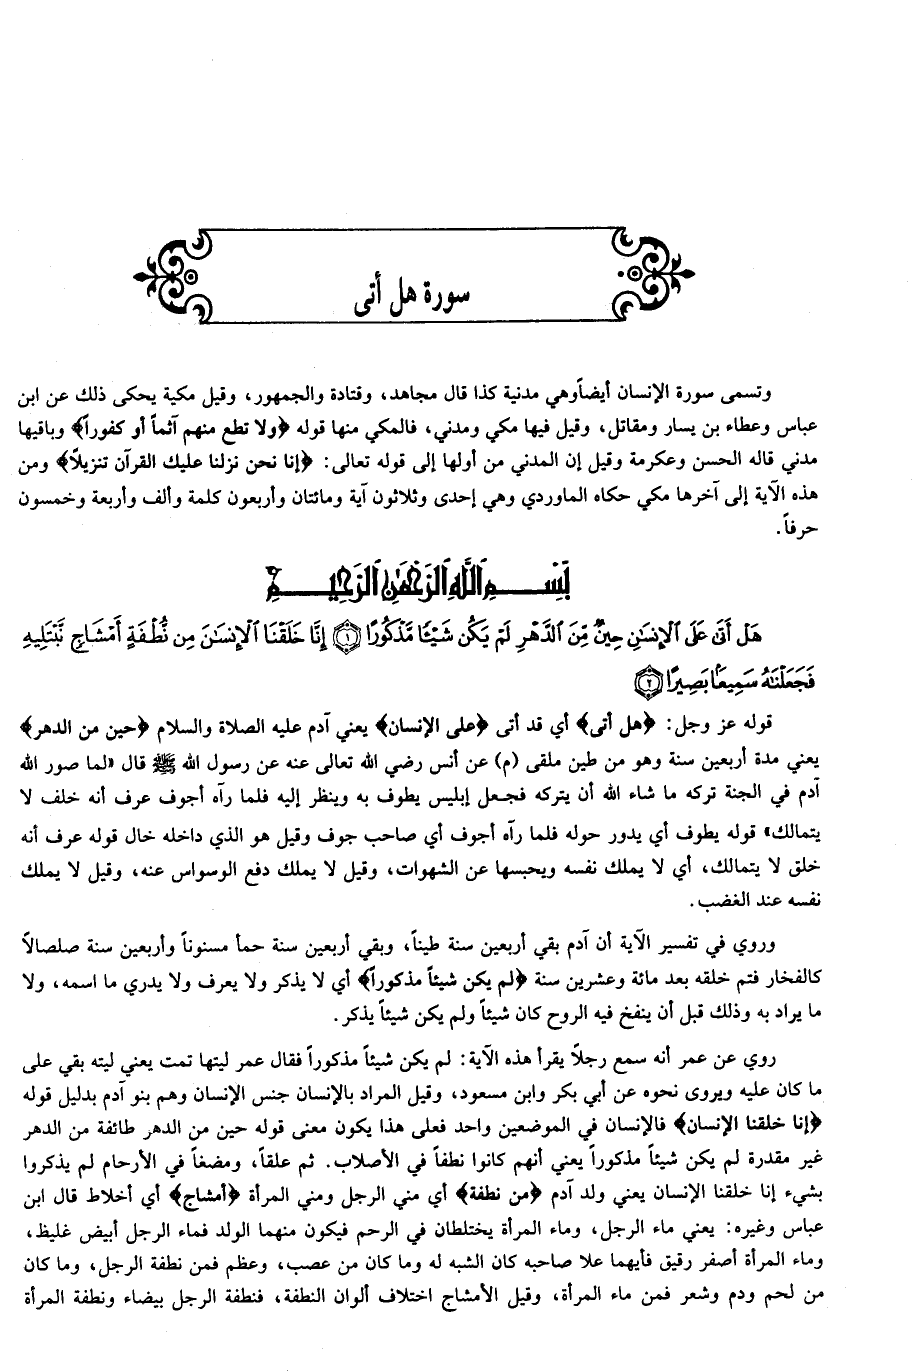 سورة هل أتى
وتسمى سورة الإنسان أيضاً وهي مدنية كذا قال مجاهد، وقتادة والجمهور، وقيل مكية يحكى ذلك عن ابن
عباس وعطاء بن يسار ومقاتل، وقيل فيها مكي ومدني، فالمكي منها قوله ﴿ولا تطع منهم آثماً أو كفوراً﴾ وباقيها
مدني قاله الحسن وعكرمة وقيل إن المدني من أولها إلى قوله تعالى: ﴿إنا نحن نزلنا عليك القرآن تنزيلاً﴾ ومن
هذه الآية إلى آخرها مكي حكاه الماوردي وهي إحدى وثلاثون آية ومائتان وأربعون كلمة وألف وأربعة وخمسون
حرفاً.
بِسْمِ اللَّهِ الرَّحْمَٰنِ الرَّحِيمِ
هَلْ أَتَىٰ عَلَى ٱلْإِنسَٰنِ حِينٌ مِّنَ ٱلدَّهْرِ لَمْ يَكُن شَيْـًٔا مَّذْكُورًا ﴿١﴾ إِنَّا خَلَقْنَا ٱلْإِنسَٰنَ مِن نُّطْفَةٍ أَمْشَاجٍ نَّبْتَلِيهِ
فَجَعَلْنَٰهُ سَمِيعًۢا بَصِيرًا ﴿٢﴾
قوله عز وجل: ﴿هل أتى﴾ أي قد أتى ﴿على الإنسان﴾ يعني آدم عليه الصلاة والسلام ﴿حين من الدهر﴾
يعني مدة أربعين سنة وهو من طين ملقى (م) عن أنس رضي الله تعالى عنه عن رسول الله ﷺ قال «لما صور الله
آدم في الجنة تركه ما شاء الله أن يتركه فجعل إبليس يطوف به وينظر إليه فلما رآه أجوف عرف أنه خلف لا
يتمالك» قوله يطوف أي يدور حوله فلما رآه أجوف أي صاحب جوف وقيل هو الذي داخله خال قوله عرف أنه
خلق لا يتمالك، أي لا يملك نفسه ويحبسها عن الشهوات، وقيل لا يملك دفع الوسواس عنه، وقيل لا يملك
نفسه عند الغضب.
وروي في تفسير الآية أن آدم بقي أربعين سنة طيناً، وبقي أربعين سنة حمأ مسنوناً وأربعين سنة صلصالاً
كالفخار فتم خلقه بعد مائة وعشرين سنة ﴿لم يكن شيئاً مذكوراً﴾ أي لا يذكر ولا يعرف ولا يدري ما اسمه، ولا
ما يراد به وذلك قبل أن ينفخ فيه الروح كان شيئاً ولم يكن شيئاً يذكر.
روي عن عمر أنه سمع رجلاً يقرأ هذه الآية: لم يكن شيئاً مذكوراً فقال عمر ليتها تمت يعني ليته بقي على
ما كان عليه ويروى نحوه عن أبي بكر وابن مسعود، وقيل المراد بالإنسان جنس الإنسان وهم بنو آدم بدليل قوله
﴿إنا خلقنا الإنسان﴾ فالإنسان في الموضعين واحد فعلى هذا يكون معنى قوله حين من الدهر طائفة من الدهر
غير مقدرة لم يكن شيئاً مذكوراً يعني أنهم كانوا نطفاً في الأصلاب. ثم علقاً، ومضغاً في الأرحام لم يذكروا
بشيء إنا خلقنا الإنسان يعني ولد آدم ﴿من نطفة﴾ أي مني الرجل ومني المرأة ﴿أمشاج﴾ أي أخلاط قال ابن
عباس وغيره: يعني ماء الرجل، وماء المرأة يختلطان في الرحم فيكون منهما الولد فماء الرجل أبيض غليظ،
وماء المرأة أصفر رقيق فأيهما علا صاحبه كان الشبه له وما كان من عصب، وعظم فمن نطفة الرجل، وما كان
من لحم ودم وشعر فمن ماء المرأة، وقيل الأمشاج اختلاف ألوان النطفة، فنطفة الرجل بيضاء ونطفة المرأة